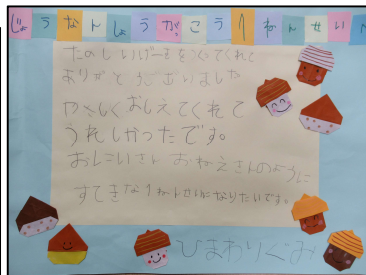 じょうなんしょうがっこう1ねんせいへ
たのしいげーむをつくてくれて
ありがとうございました
やさしくおしえてくれて
うれしかったです。
おにいさん おねえさんのように
すてきな1ねんせいになりたいです。
ひまわりぐみ